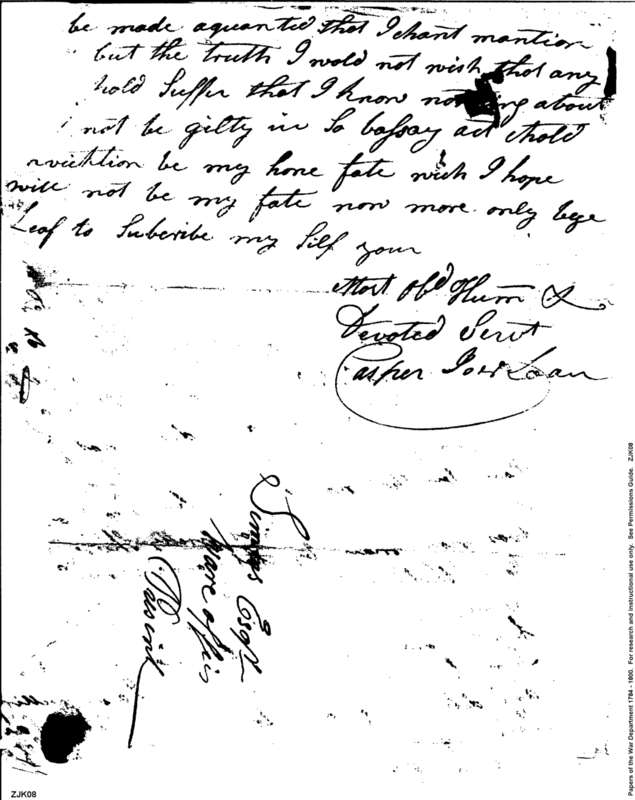 be made aquanted that I chant mantion
but the truth I wold not wish that any
hold Suffer that I know about
not be gilty in So bassay act Shold
be my hone fate wich I hope
will not be my fate now more only bege
Leaf to Subcribe my Self your
Most Obd Hum &
Devoted Servt
Casper
Simmons Esqr
Ware offis
Present
Papers of the War Department 1784 - 1800. For research and instructional use only. See Permissions Guide. ZJK08
ZJK08